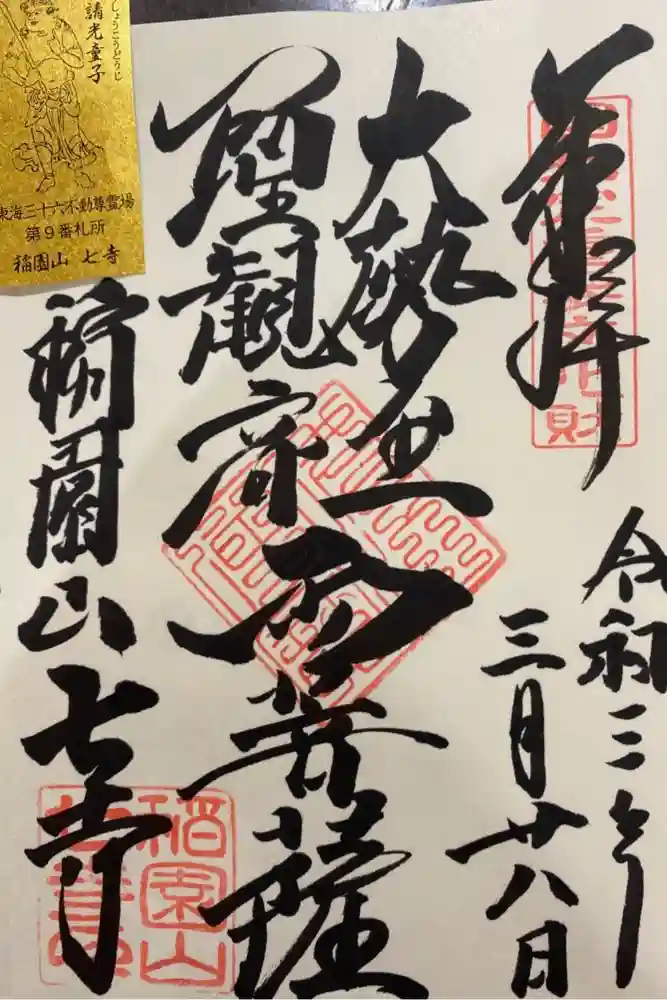 奉拝
令和三年
三月廿八日
大勢至
聖観音
両菩薩
稲園山七寺
稲園山
七寺
しょうこうどうじ
請光童子
東海三十六不動尊霊場
第9番札所
稲園山 七寺